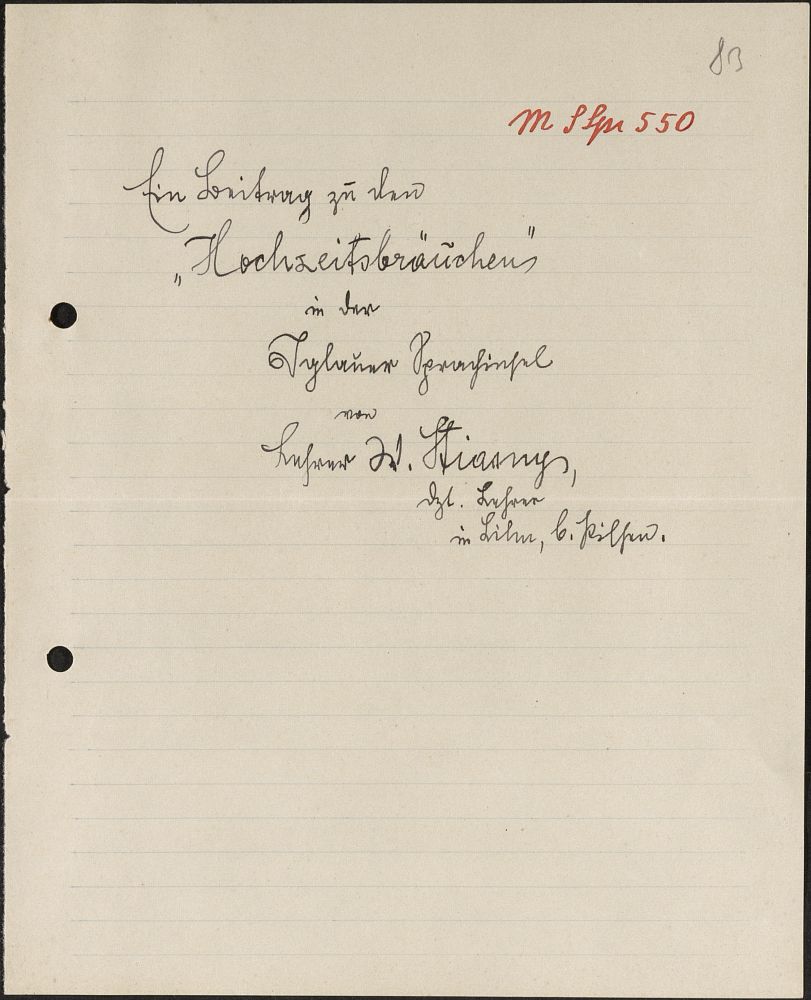 83
M Spr 550
Ein Beitrag zu den
„Hochzeitsbräuchen"
in der
Iglauer Sprachinsel
von
Lehrer W. Stiasny,
dzt. Lehrer
in Lihn, b. Pilsen.